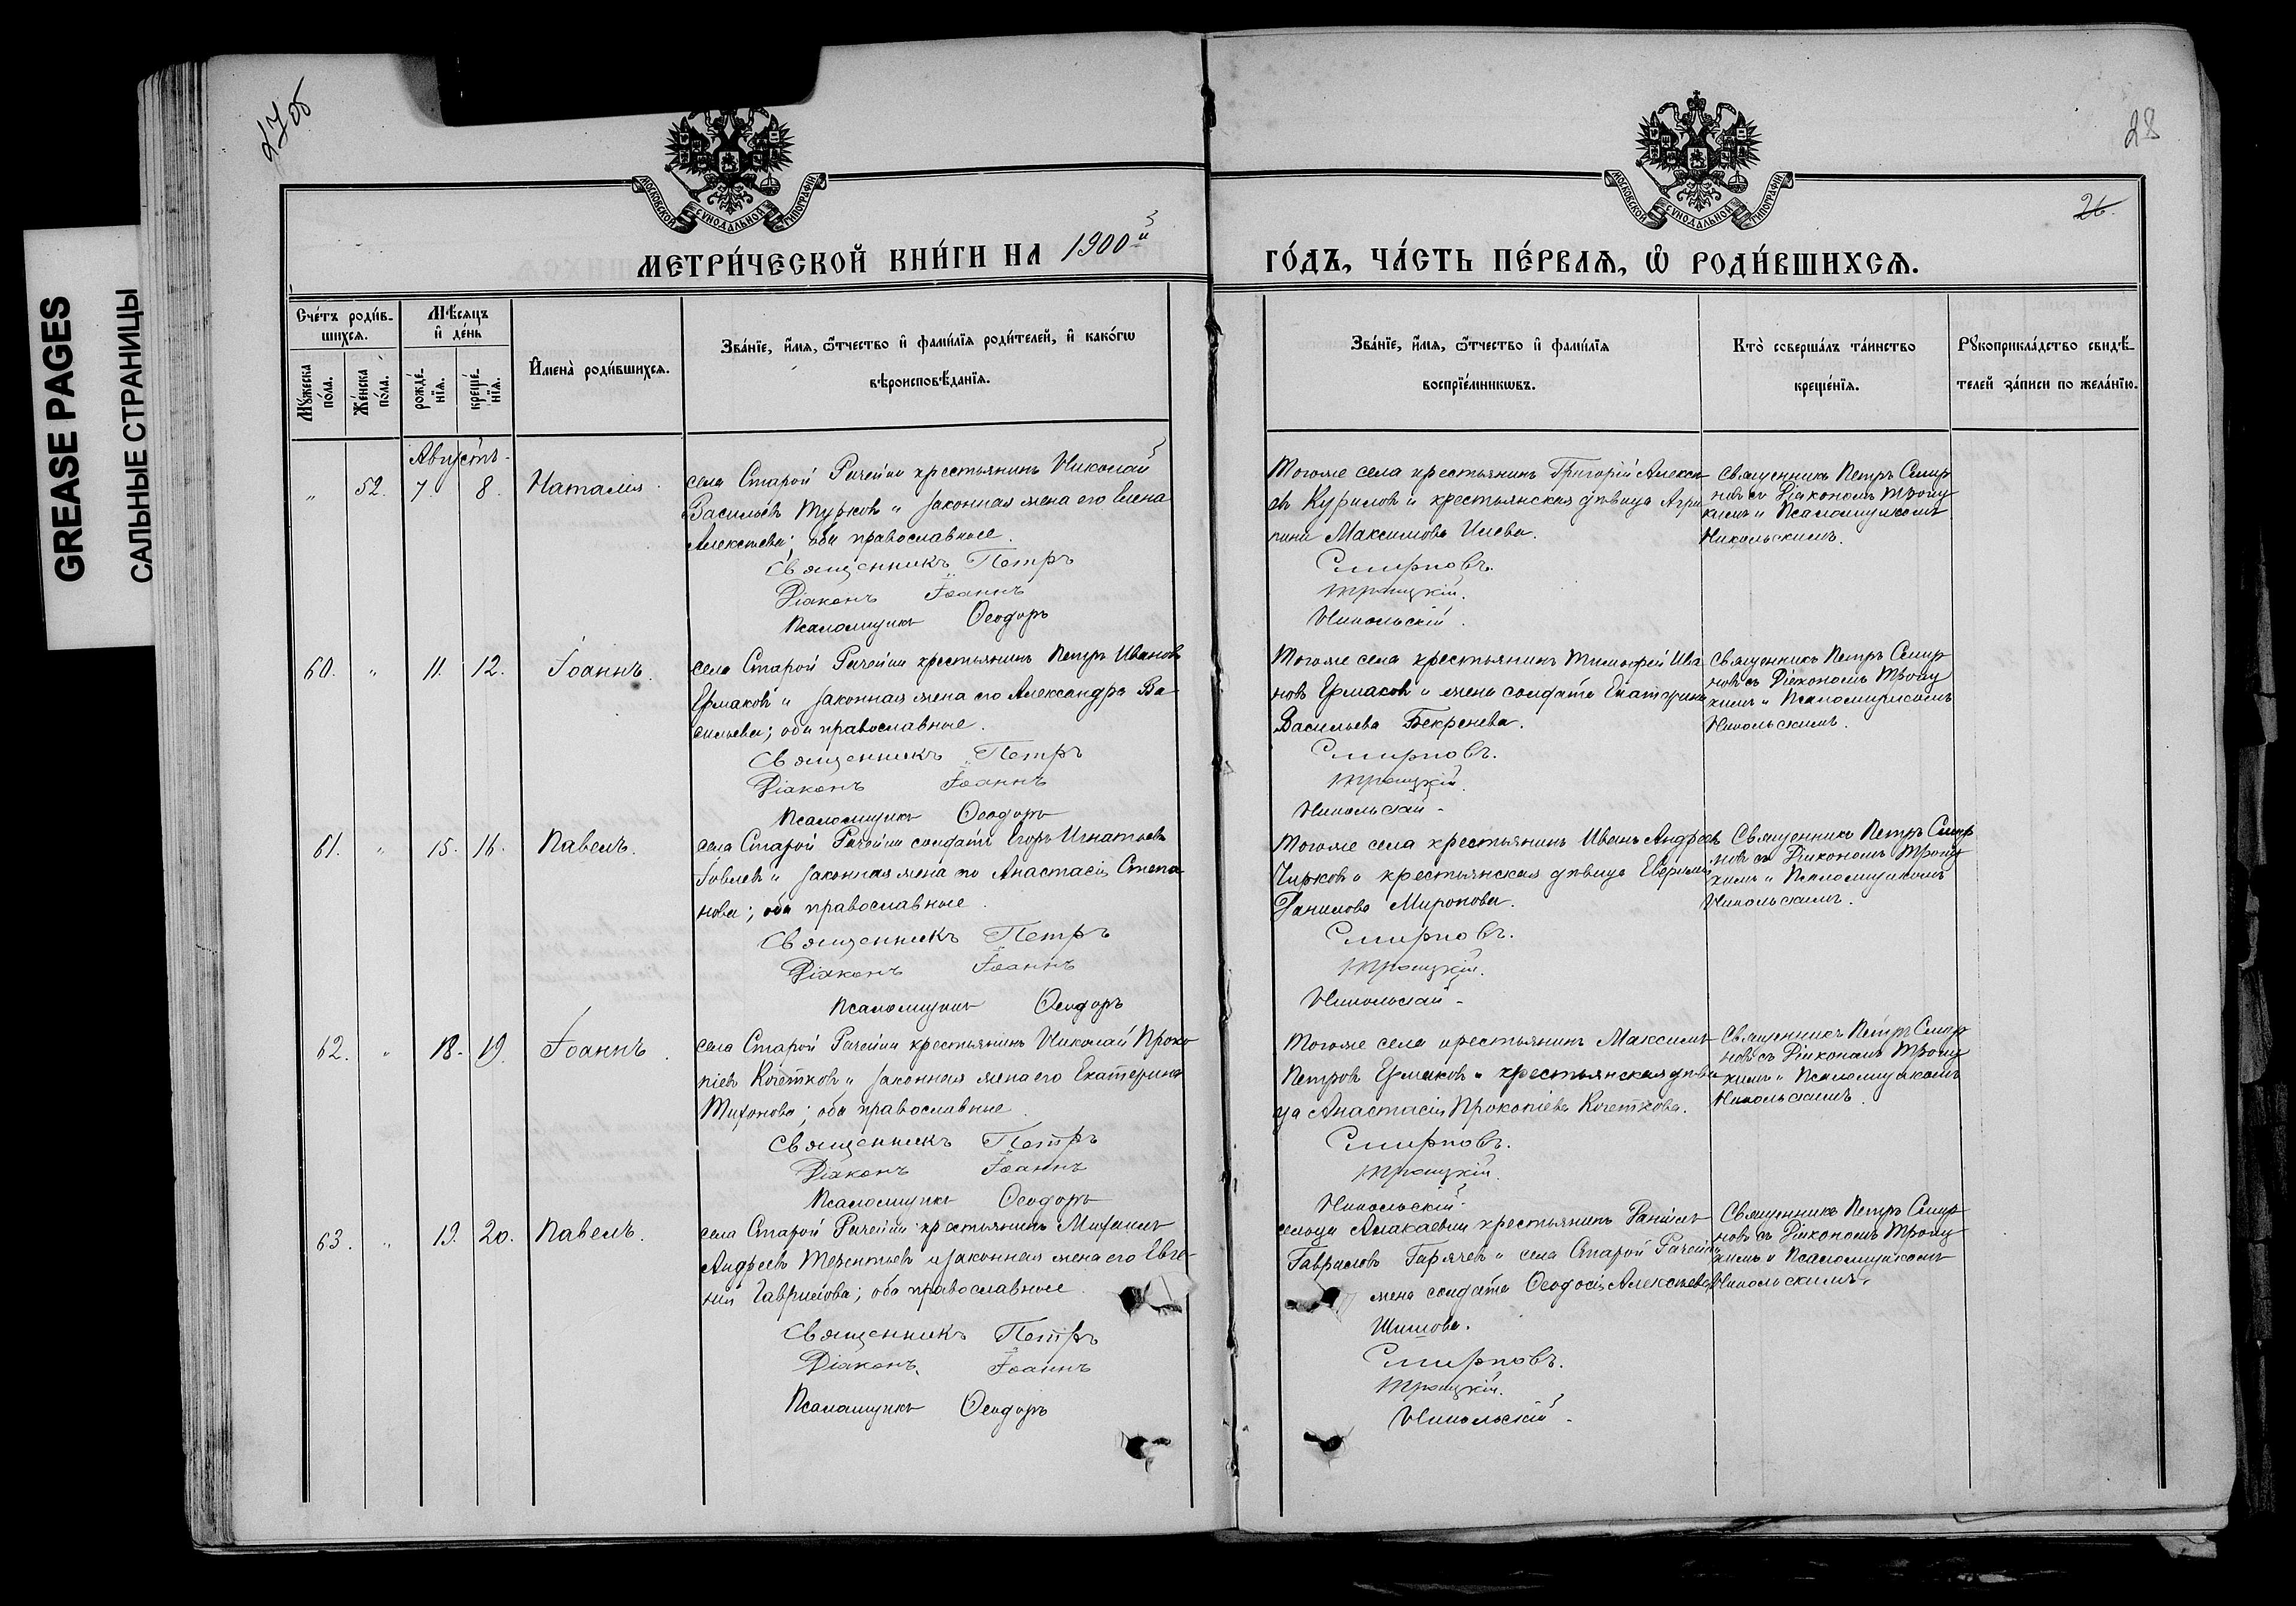 GREASE PAGES
САЛЬНЫЕ СТРАНИЦЫ
27об
28
26.
МОСКОВСКОЙ СУНОДАЛЬНОЙ ТИПОГРАФІИ
МОСКОВСКОЙ СУНОДАЛЬНОЙ ТИПОГРАФІИ
МЕТРИ́ЧЕСКОЙ КНИ́ГИ НА 1900й
ГО́ДЪ, ЧА́СТЬ ПЕ́РВАѦ, Ѡ РОДИ́ВШИХСѦ.
Сче́тъ роди́вшихсѧ.
Мѹжеска по́ла.
Же́нска по́ла.
Мѣ́сѧцъ и де́нь
рожде́нїѧ.
креще́нїѧ.
Имена̀ роди́вшихсѧ.
Зва́нїе, и́мѧ, ѿчество и фами́лїѧ роди́телей, и како́гѡ
вѣроисповѣ́данїѧ.
Зва́нїе, и́мѧ, ѿчество и фами́лїѧ
воспрїе́мникѡвъ.
Кто̀ соверша́лъ та́инство
креще́нїѧ.
Рѹкоприкла́дство свидѣ́-
телей за́писи по жела́нїю.
Августъ.
" 52. 7. 8. Наталія.
села Старой Рачейки крестьянинъ Николай
Васильевъ Турковъ и законная жена его Елена
Алексѣева; оба православные.
Священникъ Петръ
Діаконъ Іоаннъ
Псаломщикъ Ѳеодоръ
Тогоже села крестьянинъ Григорій Алексѣ-
въ Куриловъ и крестьянская дѣвица Агри
пина Максимова Илева.
Смирновъ.
Троицкій.
Никольскій.
Священникъ Петръ Смир
новъ съ Діакономъ Троиц
кимъ и Псаломщикомъ
Никольскимъ.
60. " 11. 12. Іоаннъ.
села Старой Рачейки крестьянинъ Петръ Ивановъ
Ермаковъ и законная жена его Александра Ва-
сильева; оба православные.
Священникъ Петръ
Діаконъ Іоаннъ
Псаломщикъ Ѳеодоръ
Тогоже села крестьянинъ Тимофей Ива
новъ Ермаковъ и жена солдата Екатерина
Васильева Бекренева.
Смирновъ.
Троицкій.
Никольскій.
Священникъ Петръ Смир
новъ съ Діакономъ Троиц
кимъ и Псаломщикомъ
Никольскимъ.
61. " 15. 16. Павелъ.
села Старой Рачейки солдатъ Егоръ Игнатьевъ
Іовлевъ и законная жена его Анастасія Степа
нова; оба православные.
Священникъ Петръ
Діаконъ Іоаннъ
Псаломщикъ Ѳеодоръ
Тогоже села крестьянинъ Иванъ Андреевъ
Чирковъ и крестьянская дѣвица
Данилова Миронова.
Смирновъ.
Троицкій.
Никольскій.
Священникъ Петръ Смир
новъ съ Діакономъ Троиц
кимъ и Псаломщикомъ
Никольскимъ.
62. " 18. 19. Іоаннъ.
села Старой Рачейки крестьянинъ Николай Проко
піевъ Кочетковъ и законная жена его Екатерина
Тихонова; оба православные.
Священникъ Петръ
Діаконъ Іоаннъ
Псаломщикъ Ѳеодоръ
Тогоже села крестьянинъ Максимъ
Петровъ Ермаковъ и крестьянская дѣви
ца Анастасія Прокопіева Кочеткова.
Смирновъ.
Троицкій.
Никольскій.
Священникъ Петръ Смир
новъ съ Діакономъ Троиц
кимъ и Псаломщикомъ
Никольскимъ.
63. " 19. 20. Павелъ.
села Старой Рачейки крестьянинъ Михаилъ
Андреевъ Терентьевъ и законная жена его Евге-
нія Гаврилова; оба православные.
Священникъ Петръ
Діаконъ Іоаннъ
Псаломщикъ Ѳеодоръ
сельца крестьянинъ Данилъ
Гавриловъ Гарячевъ и села Старой Рачейки
жена солдата Ѳеодосія Алексѣева
Шишова.
Смирновъ.
Троицкій.
Никольскій.
Священникъ Петръ Смир
новъ съ Діакономъ Троиц
кимъ и Псаломщикомъ
Никольскимъ.